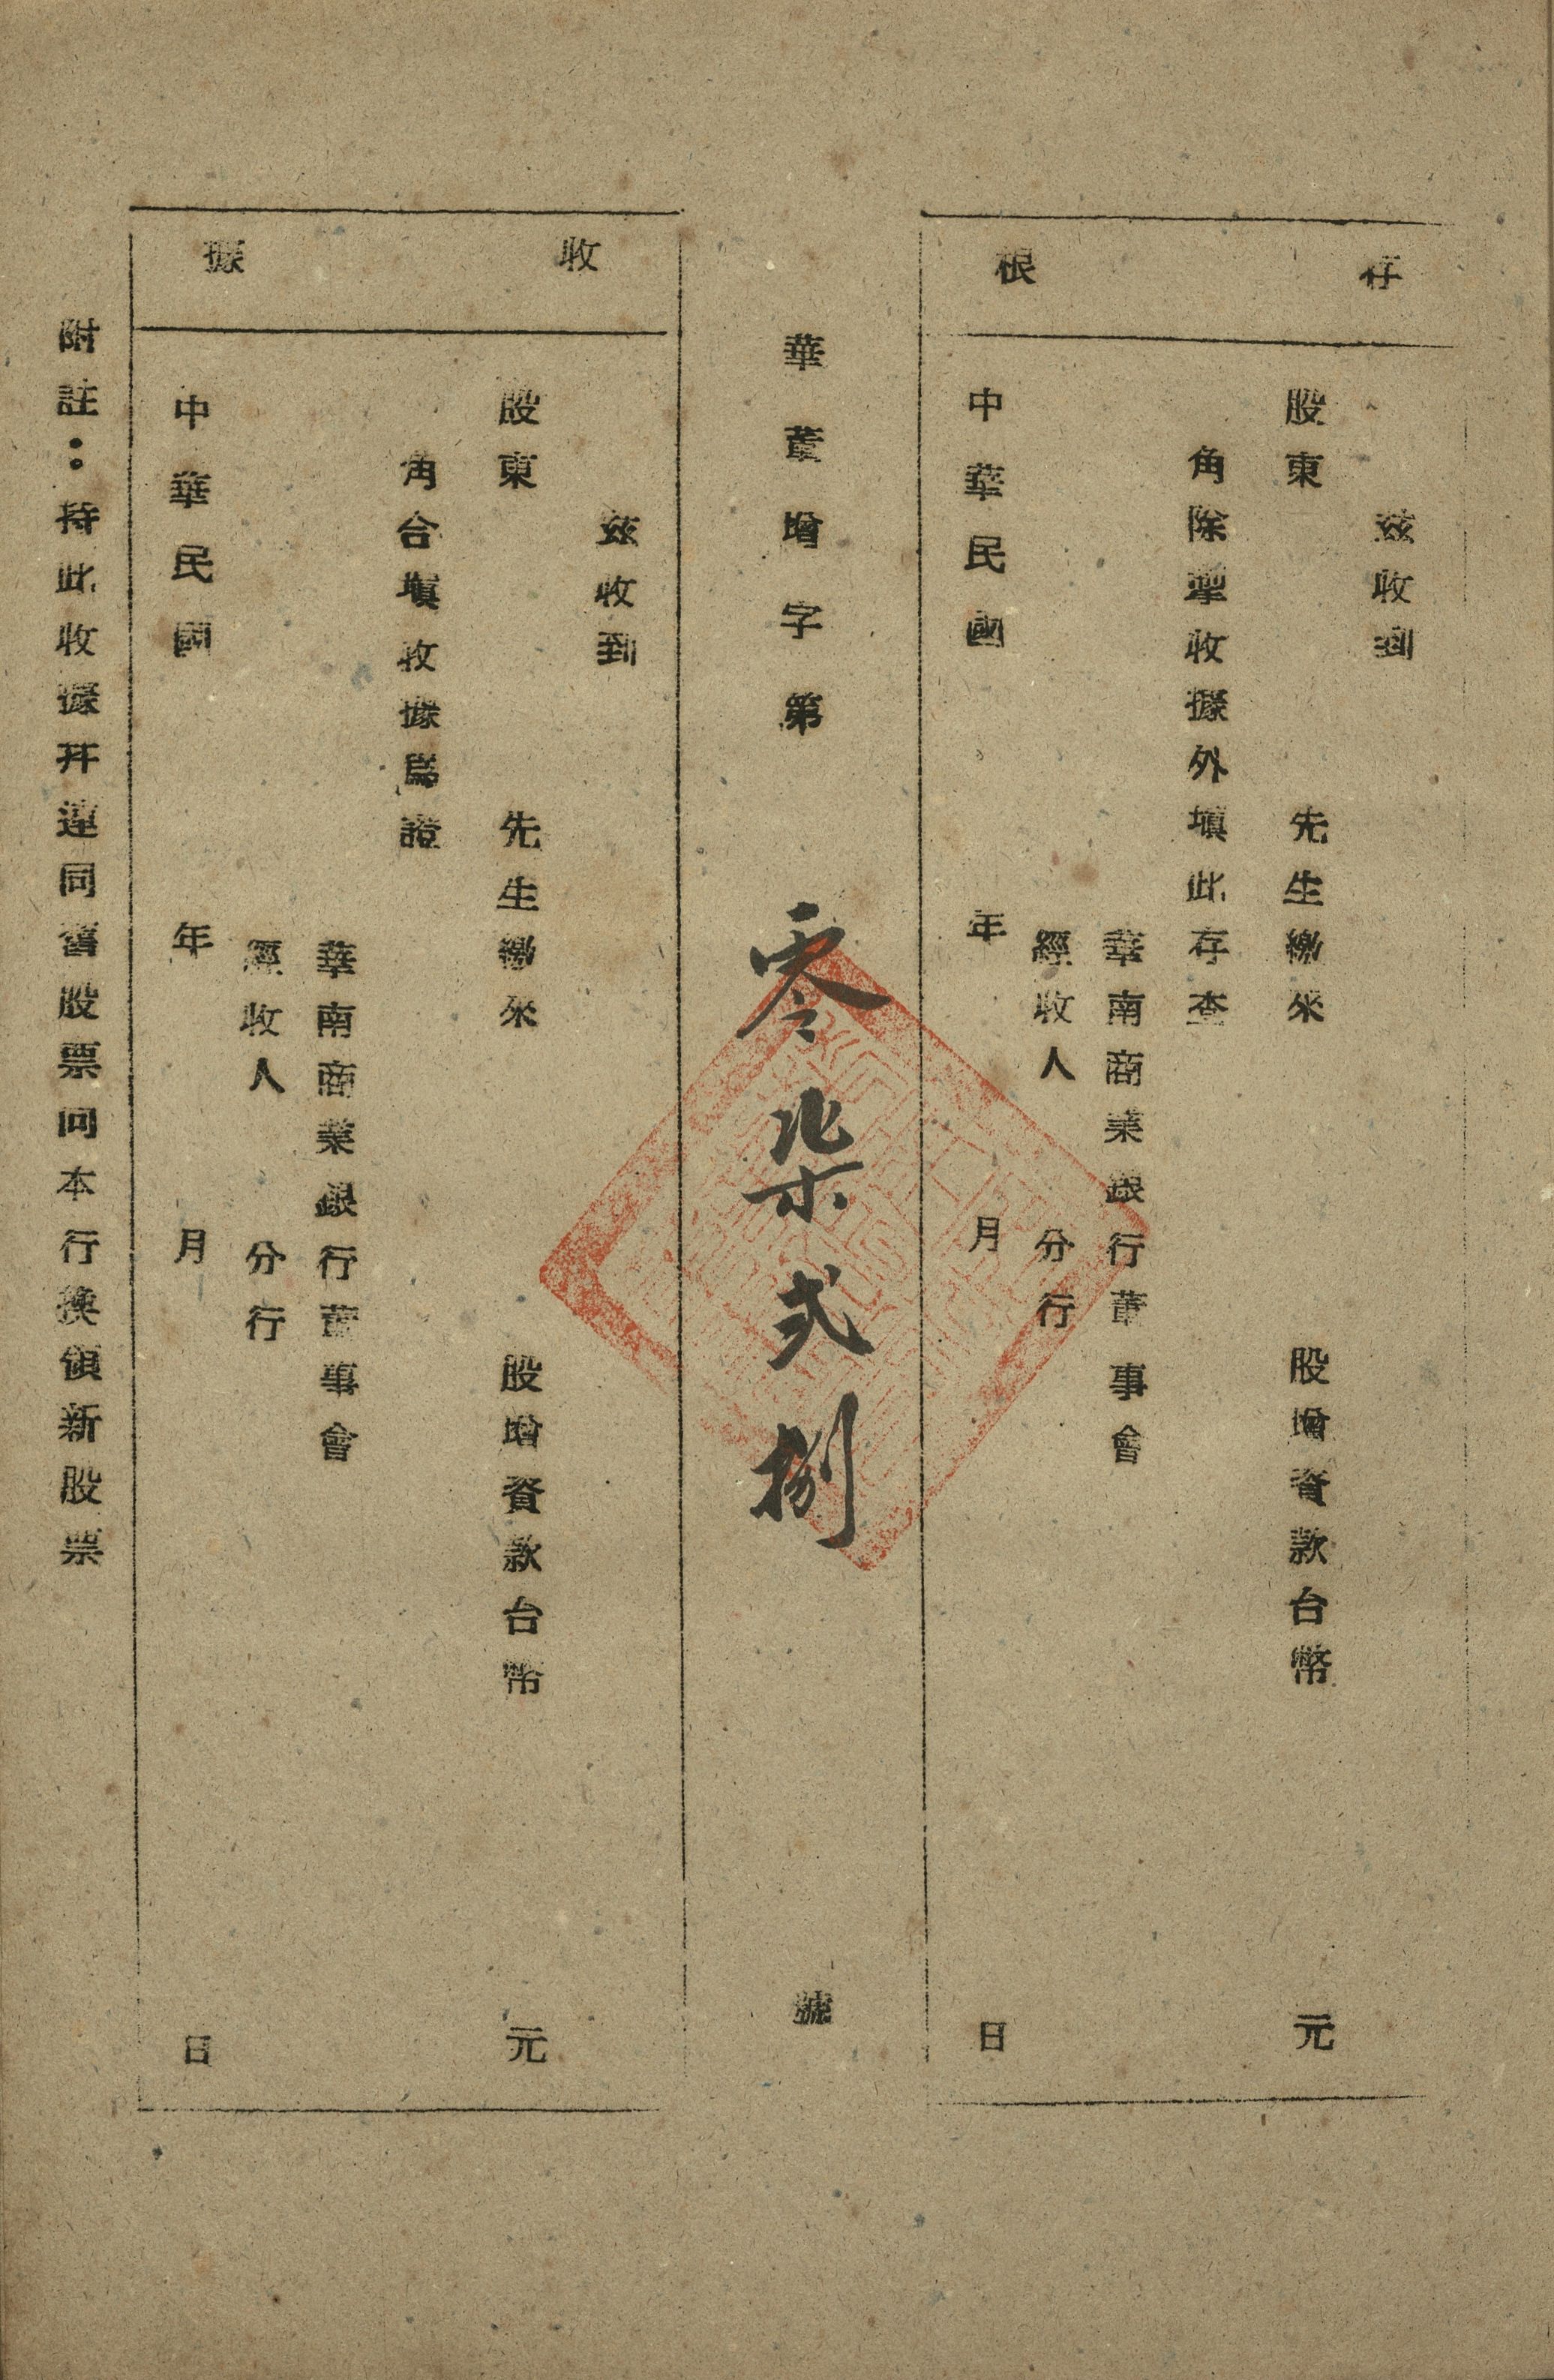 存根
茲收到
股東 先生繳來 股增資款台幣 元
角除掣收據外塡此存查
華南商業銀行董事會
經收人 分行
中華民國 年 月 日
華董增字第 零柒弍捌 號
收據
茲收到
股東 先生繳來 股增資款台幣 元
角合塡收據爲證
華南商業銀行董事會
經收人 分行
中華民國 年 月 日
附註：持此收據幷連同舊股票向本行換領新股票